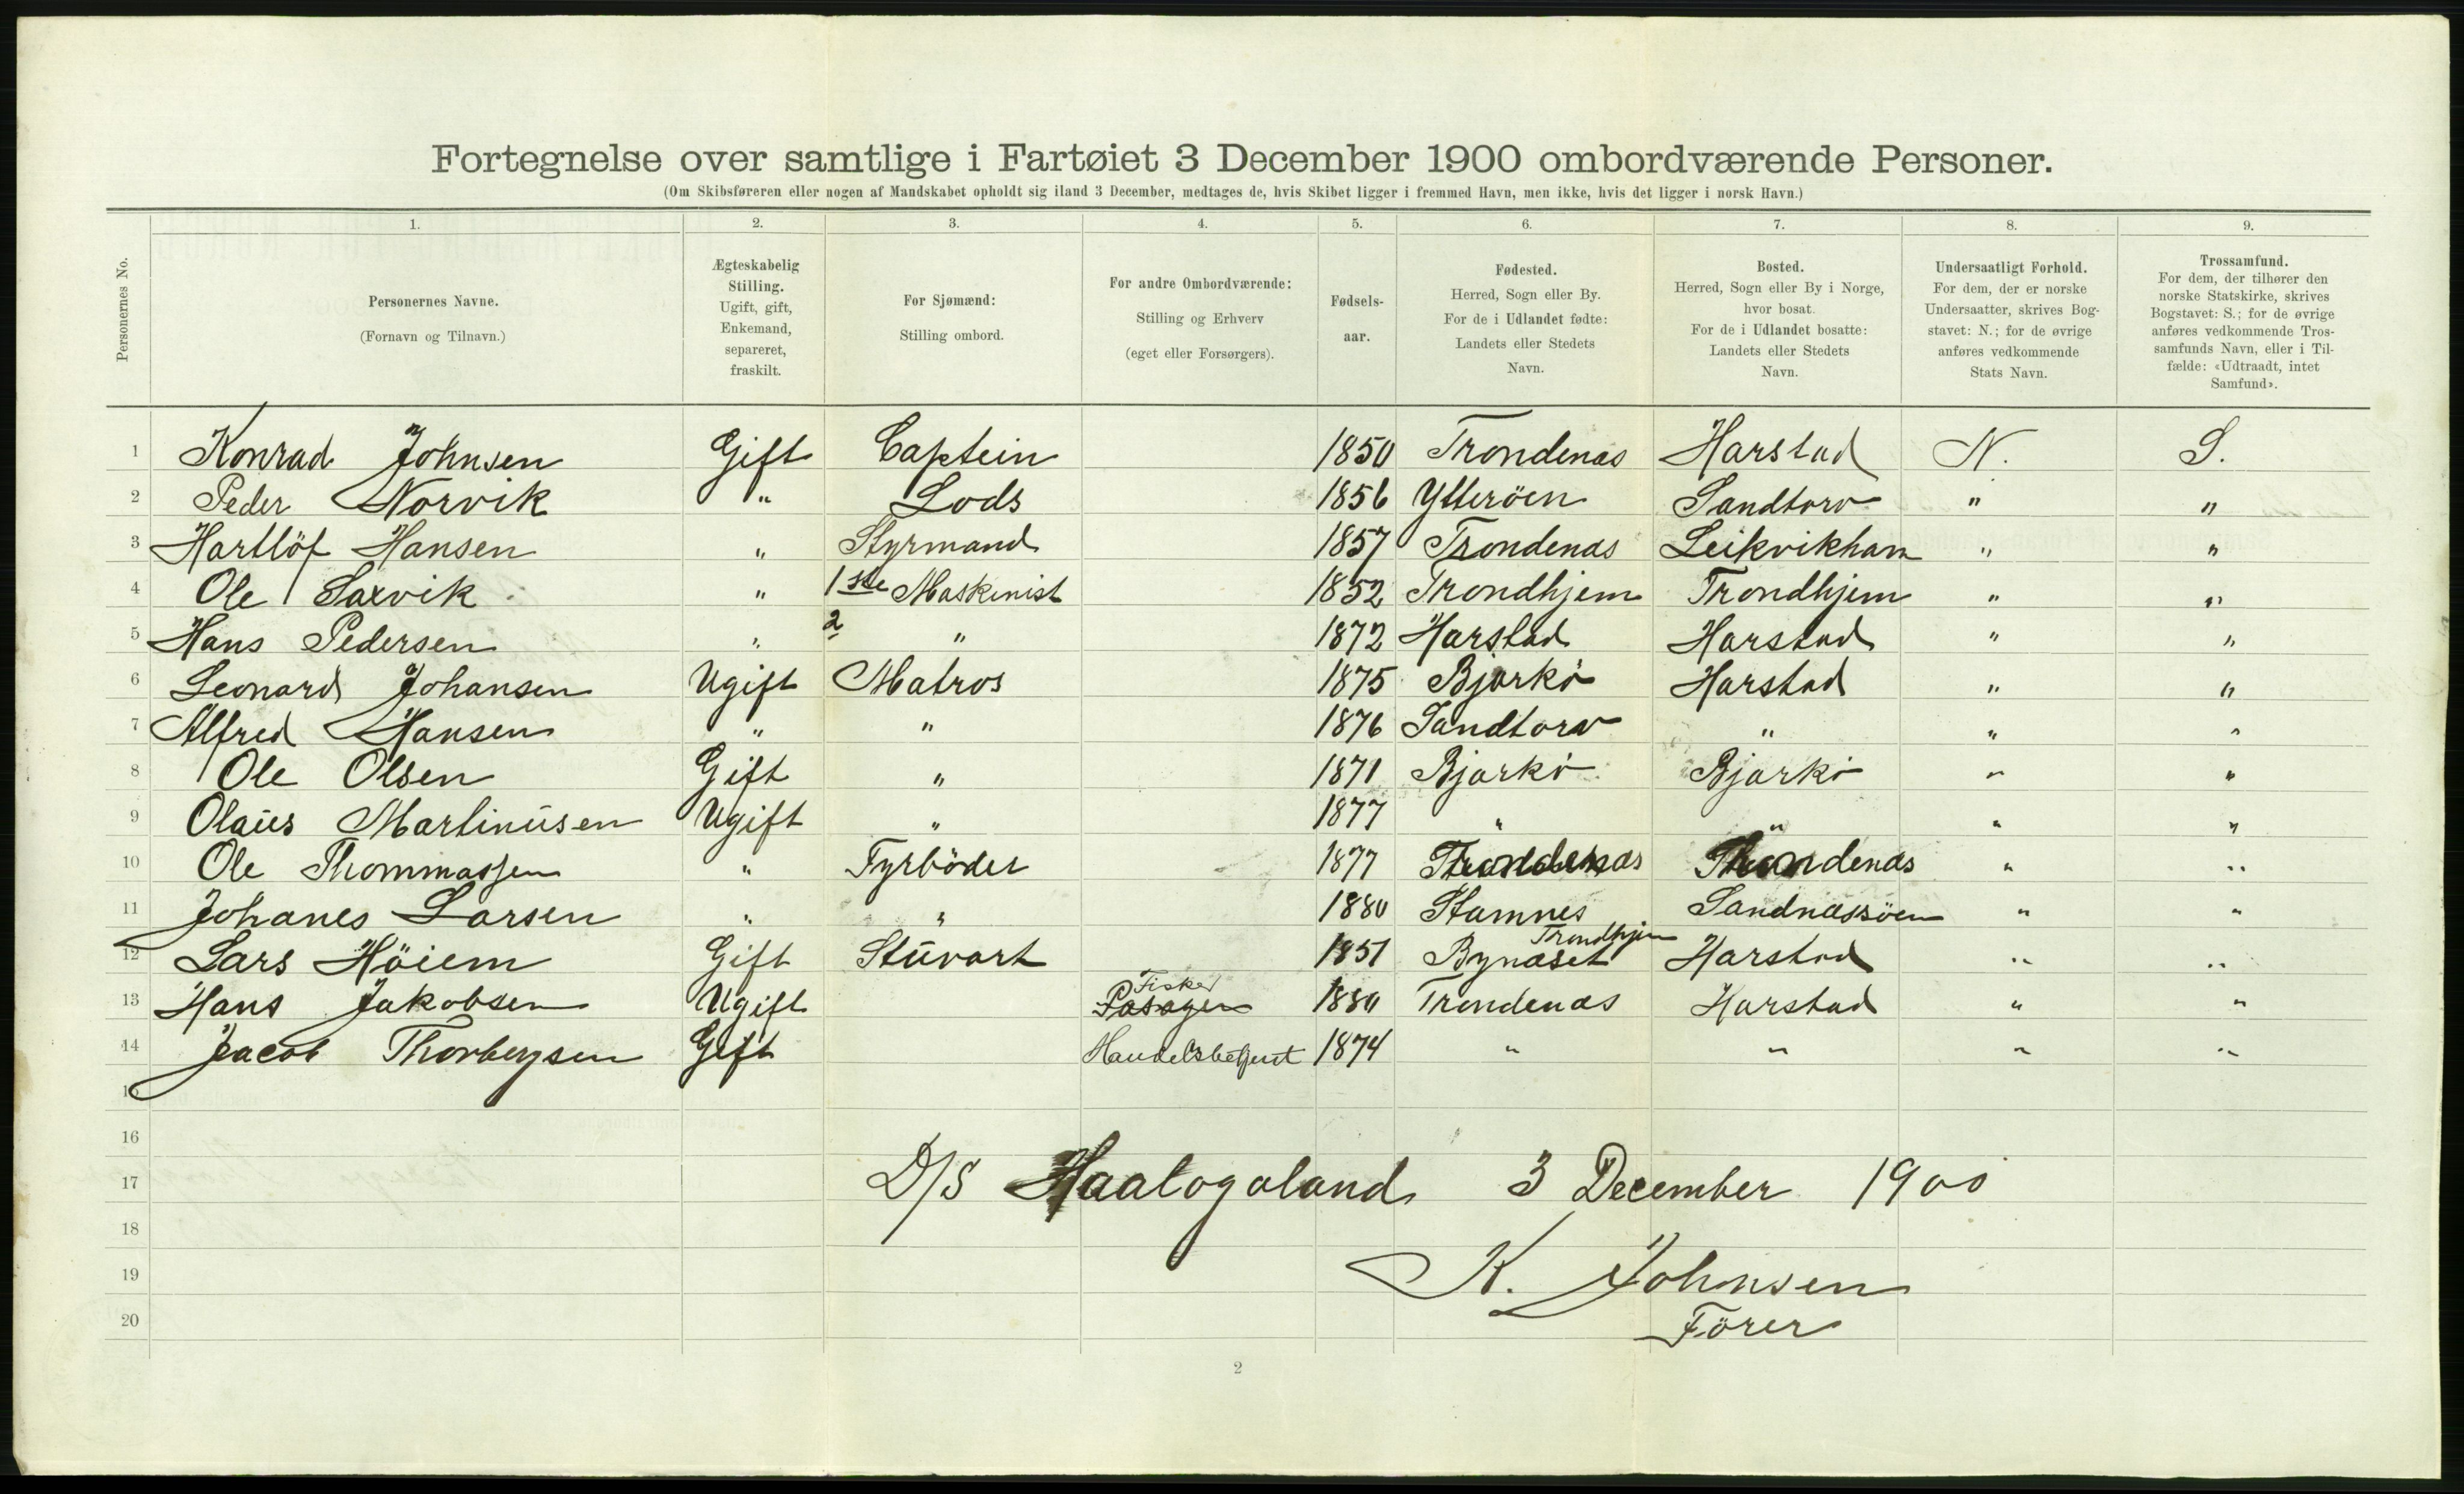 Fortegnelse over samtlige i Fartøiet 3 December 1900 ombordværende Personer.
(Om Skibsføreren eller nogen af Mandskabet opholdt sig iland 3 December, medtages de, hvis Skibet ligger i fremmed Havn, men ikke, hvis det ligger i norsk Havn.)
Personernes No.
1. 2. 3. 4. 5. 6. 7. 8. 9.
Personernes Navne.
(Fornavn og Tilnavn.)
Ægteskabelig
Stilling.
Ugift, gift,
Enkemand,
separeret,
fraskilt.
For Sjømænd:
Stilling ombord.
For andre Ombordværende:
Stilling og Erhverv
(eget eller Forsørgers).
Fødsels-
aar.
Fødested.
Herred, Sogn eller By.
For de i Udlandet fødte:
Landets eller Stedets
Navn.
Bosted.
Herred, Sogn eller By i Norge,
hvor bosat.
For de i Udlandet bosatte:
Landets eller Stedets
Navn.
Undersaatligt Forhold.
For dem, der er norske
Undersaatter, skrives Bog-
stavet: N.; for de øvrige
anføres vedkommende
Stats Navn.
Trossamfund.
For dem, der tilhører den
norske Statskirke, skrives
Bogstavet: S.; for de øvrige
anføres vedkommende Tros-
samfunds Navn, eller i Til-
fælde: «Udtraadt, intet
Samfund».
1 Konrad Johnsen Gift Captein 1850 Trondenæs Harstad N. S.
2 Peder Norvik " Lods 1856 Ytteröen Sandtorv " "
3 Hartlöf Hansen " Styrmand 1857 Trondenæs Leikvikhavn " "
4 Ole Saxvik " 1ste Maskinist 1852 Trondhjem Trondhjem " "
5 Hans Pedersen " 2 " 1872 Harstad Harstad " "
6 Leonard Johansen Ugift Matros 1875 Bjarkö Harstad " "
7 Alfred Hansen " " 1876 Sandtorv " " "
8 Ole Olsen Gift " 1871 Bjarkö Bjarkö " "
9 Olaus Martinusen Ugift " 1877 " " " "
10 Ole Thommassen " Fyrböder 1877 Trondenæs Trondenæs " "
11 Johanes Larsen " " 1880 Stamnes Sandnæssöen " "
12 Lars Höiem Gift Stuvart 1851 Bynæset Trondhjem Harstad " "
13 Hans Jakobsen Ugift Fisker Pasager 1880 Trondenæs Harstad " "
14 Jacob Thorbergsen Gift Handelsbetjent 1874 " " " "
15
16
17 D/S Haalogaland 3 December 1900
18
19 K. Johnsen
20 Förer
2